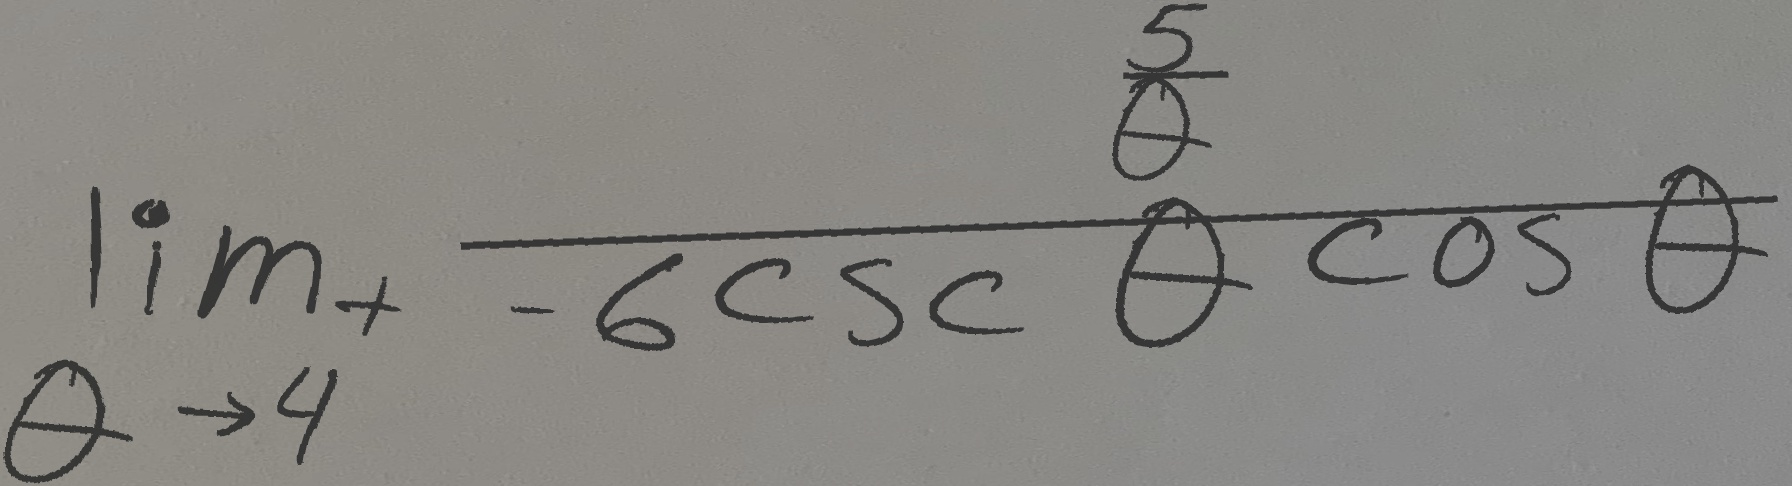 \lim_{\theta \to 4^+} \frac{\frac{5}{\theta}}{-6 \csc \theta \cos \theta}